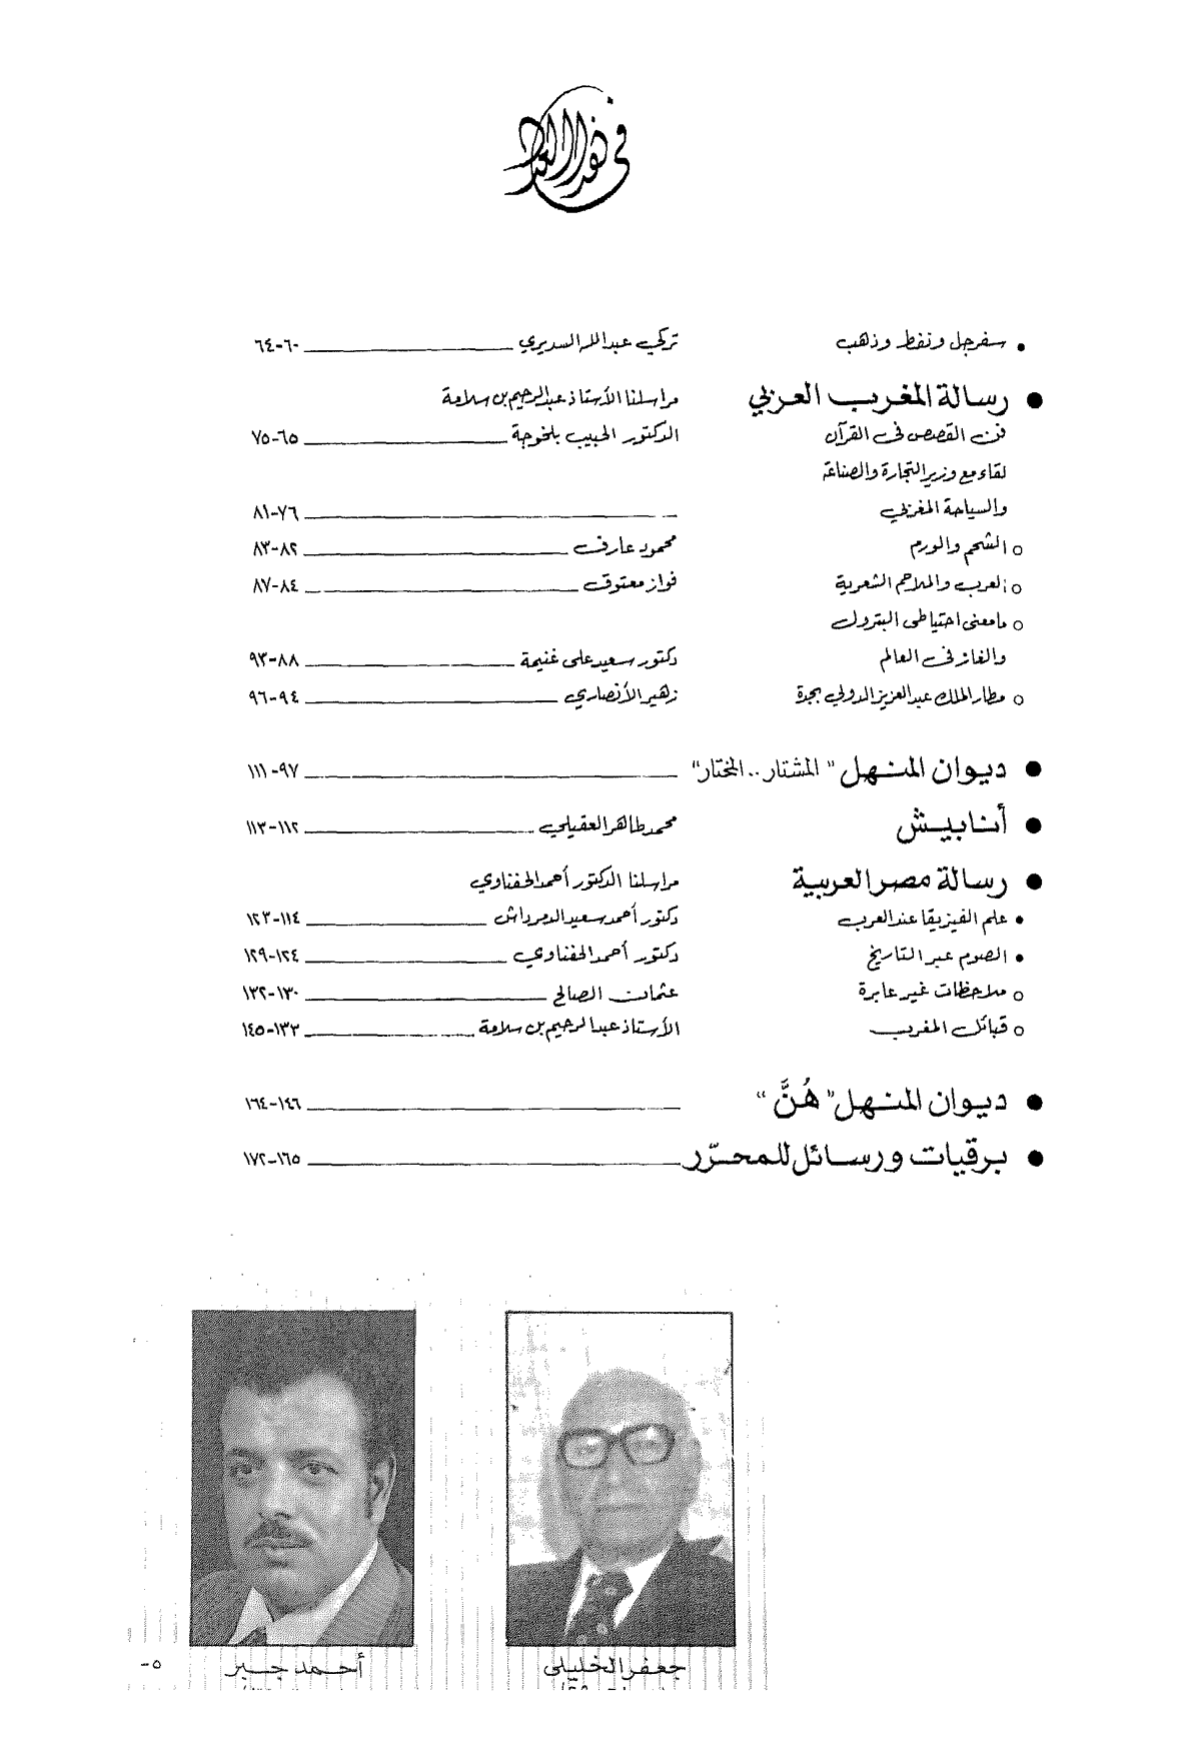 في هذا العدد
• سفرجل ونفط وذهب تركي عبدالله السديري ٦٠-٦٤
● رسالة المغرب العربي مراسلنا الأستاذ عبدالرحيم بن سلامة
فن القصص في القرآن الدكتور الحبيب بلخوجة ٦٥-٧٥
لقاء مع وزير التجارة والصناعة
والسياحة المغربي ٧٦-٨١
○ الشحم والورم محمود عارف ٨٢-٨٣
○ العرب والملاحم الشعرية فواز معتوق ٨٤-٨٧
○ مامعنى احتياطي البترول
والغاز في العالم دكتور سعيد على غنيمة ٨٨-٩٣
○ مطار الملك عبدالعزيز الدولي بجدة زهير الأنصاري ٩٤-٩٦
● ديوان المنهل "المشتار .. المختار" ٩٧-١١١
● أنابيش محمد طاهر العقيلي ١١٢-١١٣
● رسالة مصر العربية مراسلنا الدكتور أحمد الحفناوي
• علم الفيزيقا عند العرب دكتور أحمد سعيد الدمرداش ١١٤-١٢٣
• الصوم عبر التاريخ دكتور أحمد الحفناوي ١٢٤-١٢٩
○ ملاحظات غير عابرة عثمان الصالح ١٣٠-١٣٢
○ قبائل المغرب الأستاذ عبدالرحيم بن سلامة ١٣٣-١٤٥
● ديوان المنهل "هُنَّ" ١٤٦-١٦٤
● برقيات ورسائل للمحرّر ١٦٥-١٧٢
جعفر الخليلى
أحمد جبر
٥-